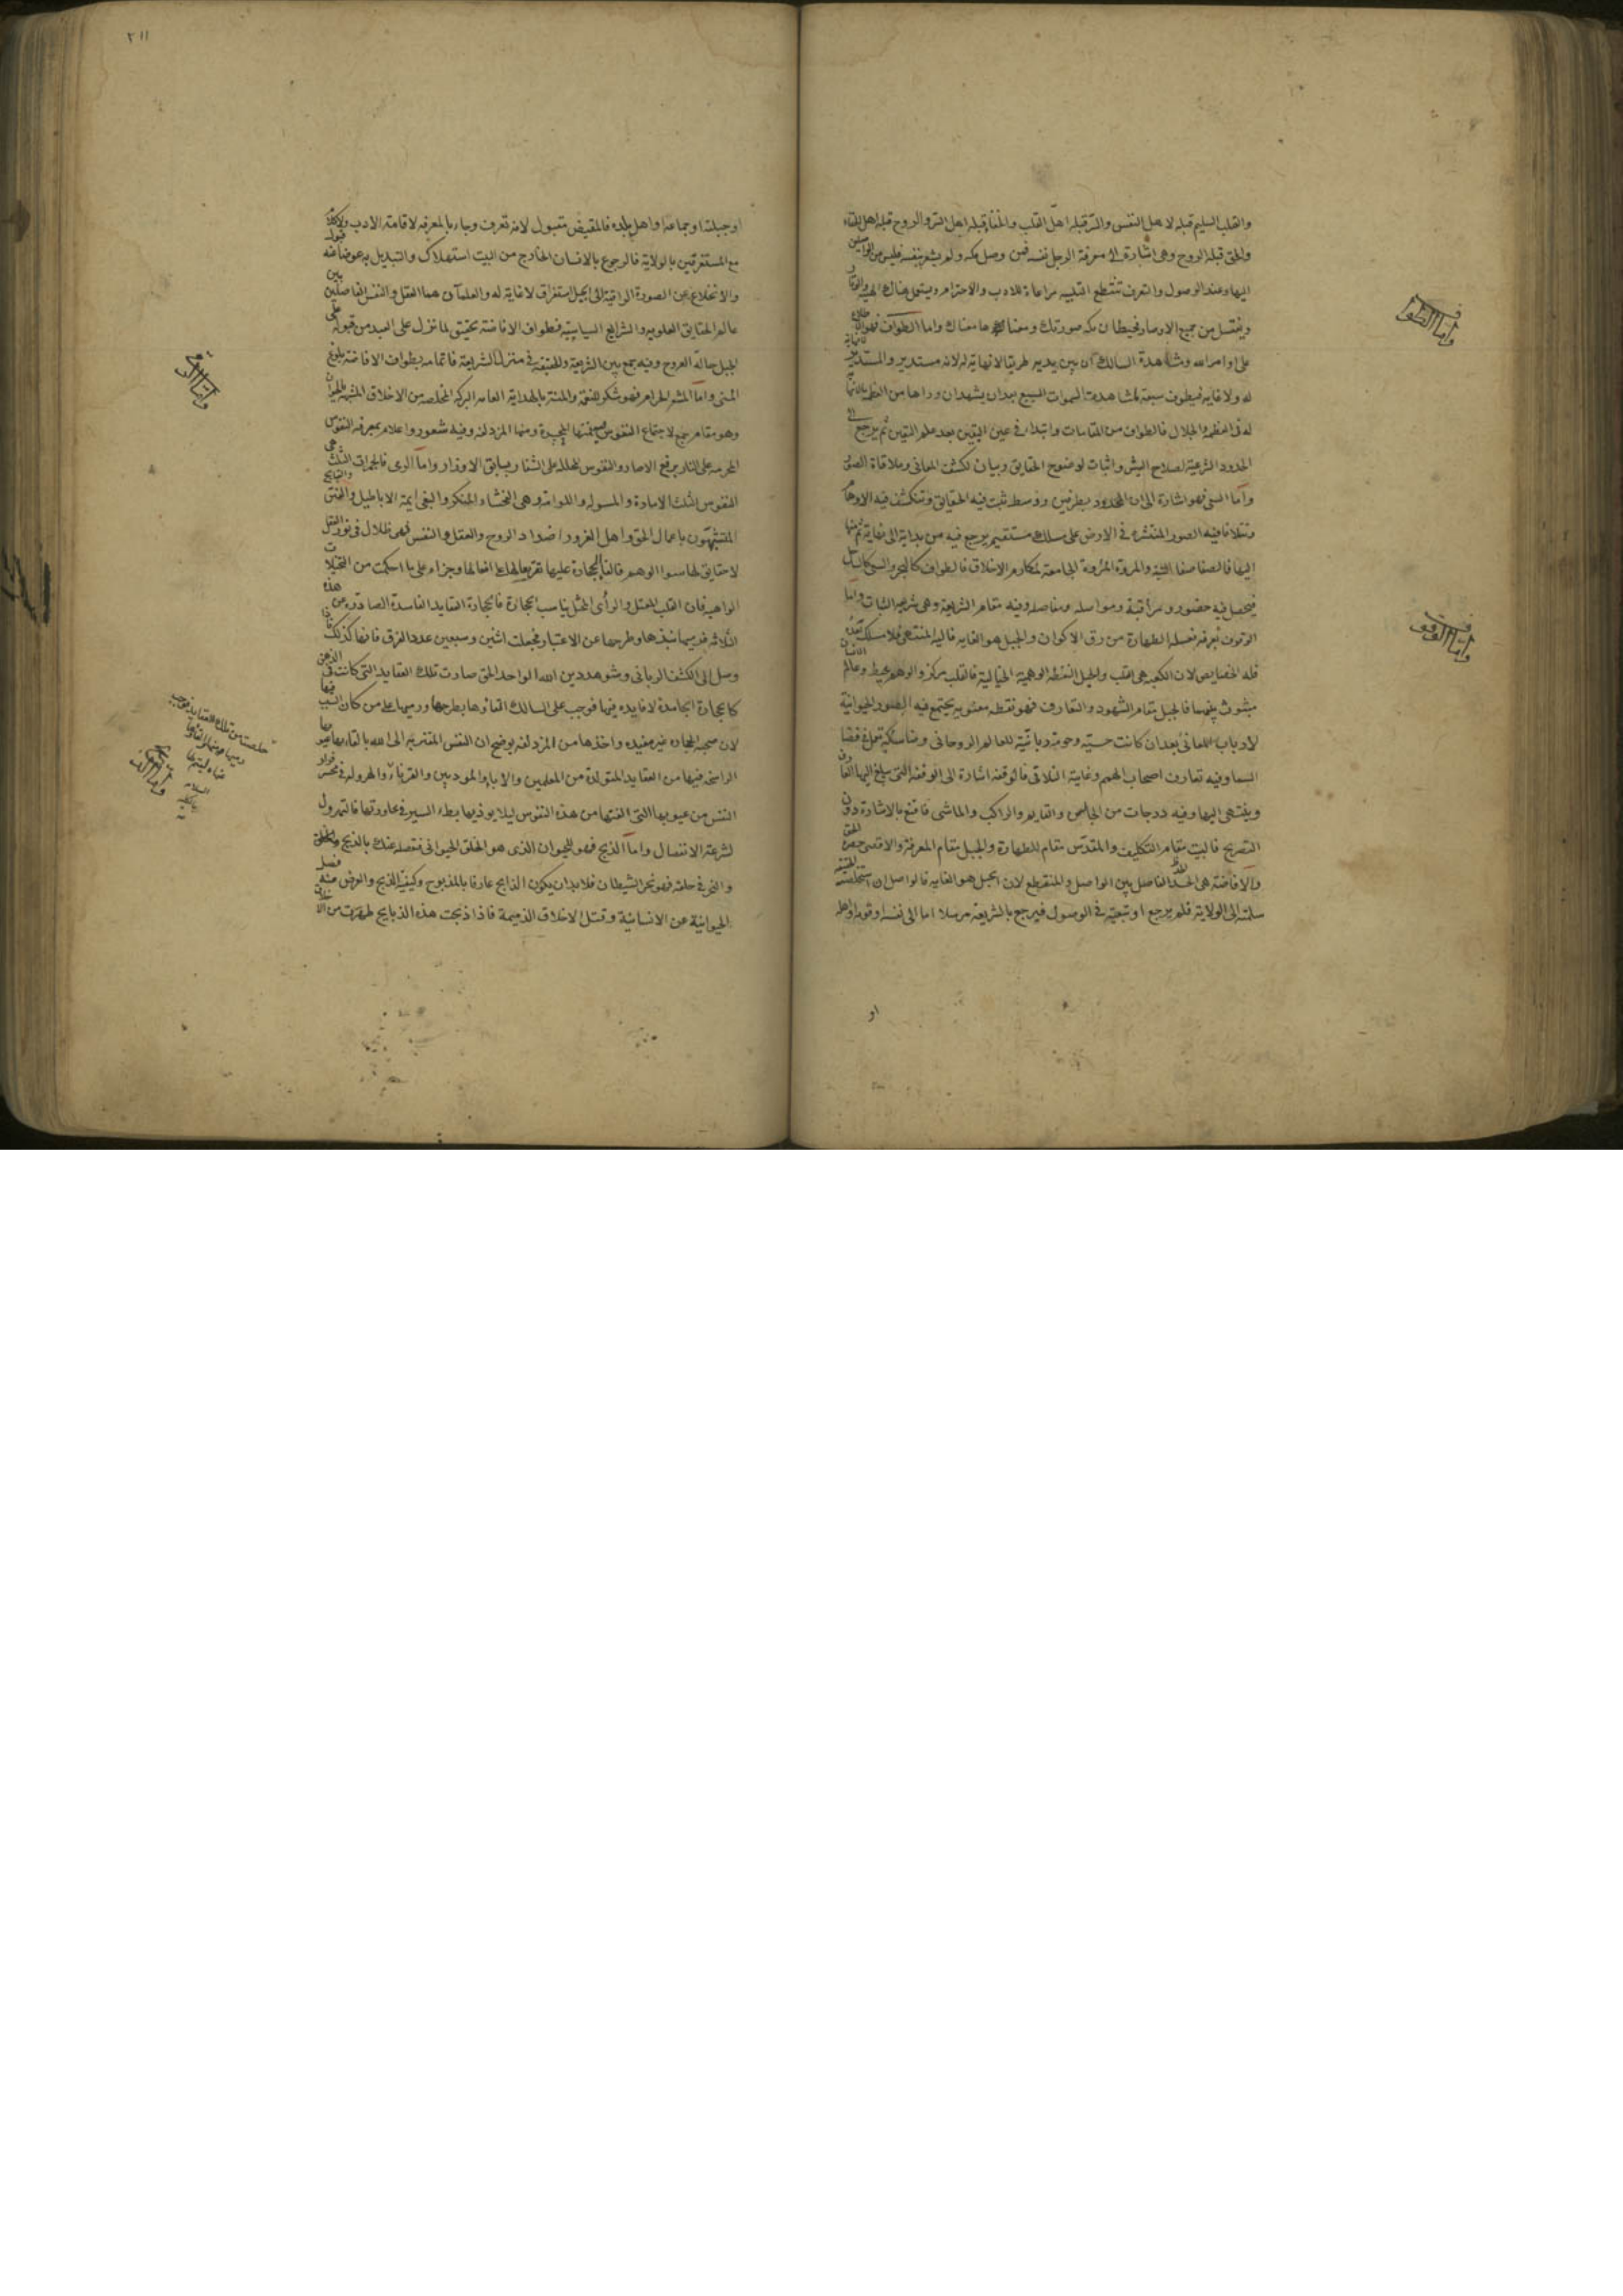 والقلب السليم قبلة لاهل النفس والسر قبلة اهل القلب والخفا قبلة اهل السر والروح قبلة اهل
والحق قبلة الروح وهى اشارة الى معرفة الرجل نفسه فمن وصل مكه ولم يشعر بنفسه فليس من الواصلين
اليها وعند الوصول والتعرف تنقطع التلبيه مراعاة للادب والاحترام ويستعمل هناك الهيبة والوقار
ويغتسل من جميع الاوصاف فحيطان مكه صورتك ومعناها معناك واما الطواف فهو
على اوامر الله ومشاهدة السالك ان بين يديه طريقا لا نهاية له لانه مستدير والمستدير
له ولا غايه فيطوف سبعة لمشاهدة السموات السبع بعد ان يشهد ان وراها من العظمة
له فى العظمة والجلال فالطواف من المقامات وابتداء فى عين اليقين بعد علم اليقين ثم يرجع الى
الحدود الشرعية لصلاح البشر واثبات لوضوح الحقايق وبيان لكشف المعانى وملاقاة الصور
واما السعى فهو اشارة الى ان المحدود بطرفين ووسط تثبت فيه الحقايق وتنكشف فيه الاوهام
وتتلاقا فيه الصور المنتشره فى الارض على مسلك مستقيم يرجع فيه من بداية الى نهاية ثم منها
اليها فالصفا صفا النية والمروة المروة الجامعة لمكارم الاخلاق فالطواف كالبحر والسعى كالساحل
فيحصل فيه حضور ومراقبة ومواصله ومفاصله وفيه مقام الشريعة وهى شرعه الثبات واما
الوقوف بعرفه فغسله الطهارة من رق الاكوان والجبل هو الغايه فاليه المنتهى فلا مسلك بعده
فله الخصايص لان الكعبه هى القلب والجبل النقطة الوهمية الخيالية فالقلب مركز والوهم محيط وعالم الانسان
مبثوث بينهما فالجبل مقام الشهود والتعارف فهو نقطه معنويه يجتمع فيه الصور الحيوانية
لارباب المعانى بعد ان كانت حسيه وحومة ربانية للعالم الروحانى ومناسكه تعمل فى فضا
السما وفيه تعارف اصحاب الهمم وغاية التلاقى فالوقفه اشارة الى الوقفه التى يبلغ اليها العارفون
وينتهى اليها وفيه درجات من الجالس والقايم والراكب والماشى فاقنع بالاشارة دون
التصريح فالبيت مقام التكليف والمقدس مقام الطهارة والجبل مقام المعرفة والاقصى حضرة الحق
والافاضة هى الحد الفاصل بين الواصل والمنقطع لان الجبل هو الغايه فالواصل ان استخلصته الحقيقة
سلمته الى الولاية فلم يرجع او تبعيه فى الوصول فيرجع بالشريعة مرسلا اما الى نفسه او قومه او اهله
او
واما الطواف
واما الوقوف
٢١١
او جبلته او جماعه او اهل بلده فالمفيض مقبول لانه تعرف وجاء بالمعرفه لاقامة الادب
مع المستغرقين بالولاية فالرجوع بالانسان الخارج من البيت استهلاك والتبديل به عوضا عنه قبول
والانخلاع عن الصورة الراقية الى الجبل استغراق لا غاية له والعلمان هما العقل والنفس الفاصلين بين
عالم الحقايق العلويه والشرايع السياسيه فطواف الافاضة تحقيق لما تنزل على العبد من قبوله على
الجبل حالة العروج وفيه جمع بين الشريعة والحقيقة فى منزل الشريعة فاتمامه بطواف الافاضة بلوغ
المنى واما المشعر الحرام فهو شكر للنعمة والمنة بالهداية العامه البركه المخلصه من الاخلاق المشبه بالحيوان
وهو مقام جمع لاجتماع النفوس ومنها المزدلفة وفيه شعور واعلام بمعرفه النفوس
المحرمه على النار برفع الاصار والنفوس المحلله على الشفا بسابق الاوزار واما الرمى فالجمرات الثلث هى
النفوس الثلث الامارة والمسوله واللوامة وهى الفحشاء والمنكر والبغى ايمة الاباطيل والفتن والقبايح
المتشبهون باعمال الحق واهل الغرور اضداد الروح والعقل والنفس فهى ظلال فى نور العقل
لا حقايق لها سوا الوهم فالقا الحجارة عليها تقريعا لها على افعالها وجزاء على ما احكمت من التخيلات
الواهيه فان القلب للعقل والرأى الممثل يناسب الحجارة فالحجارة العقايد الفاسدة الصادره من هذه
الثلاثه فرميها نبذها وطرحها عن الاعتبار فجعلت اثنين وسبعين عدد الفرق فانها كذلك فاذا
وصل الى الكشف الربانى وشوهد دين الله الواحد الحق صارت تلك العقايد التى كانت فى الذهن
كالحجارة الجامدة لا فايده فيها فوجب على السالك القاؤها بطرحها ورميها على من كان السبب فيها
لان صحبة الحجاره غير مفيده واخذها من المزدلفه يوضح ان النفس المتقربة الى الله بالقاء ما
الراسخه فيها من العقايد المتولدة من المعلمين والاباء والمودبين والقرناء والهروله فى محسر فرار
النفس من عيوبها التى الفتها من هذه النفوس ليلا يوذيها بطء السير فى مجاورتها فالتهرول
لسرعة الانفصال واما الذبح فهو للحيوان الذى هو الخلق الحيوانى فتفصله عنك بالذبح والحلق
والنحر فى حلقه فهو نحر الشيطان فلا بد ان يكون الذابح عارفا بالمذبوح وكيفية الذبح والغرض منه فصل
الحيوانية عن الانسانية وقتل الاخلاق الذميمة فاذا ذبحت هذه الذبايح طهرت من الاخلاق
واما الذبح